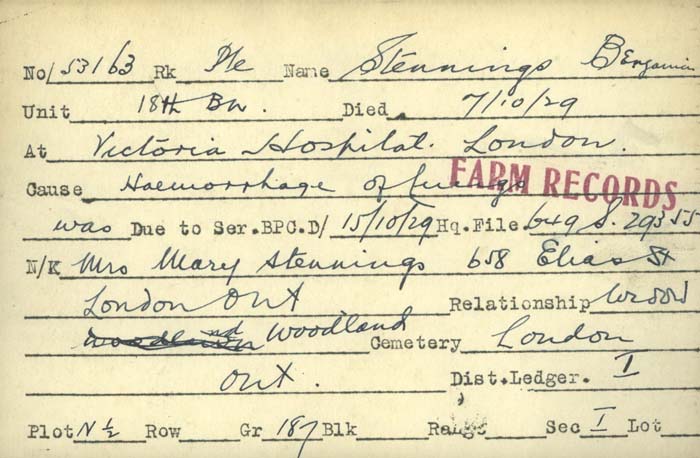 No/ 53163 Rk Pte Name Stennings Benjamin
Unit 18th Bn. Died 7/10/29
At Victoria Hospital. London.
Cause Haemorrhage of lungs FARM RECORDS
was Due to Ser.BPC.D/ 15/10/29 Hq.File. 649 S. 29355
N/K Mrs Mary Stennings 658 Elias St
London Ont Relationship Widow
Woodland Cemetery London
Ont. Dist.Ledger. I
Plot N ½ Row Gr 187 Blk Range Sec I Lot